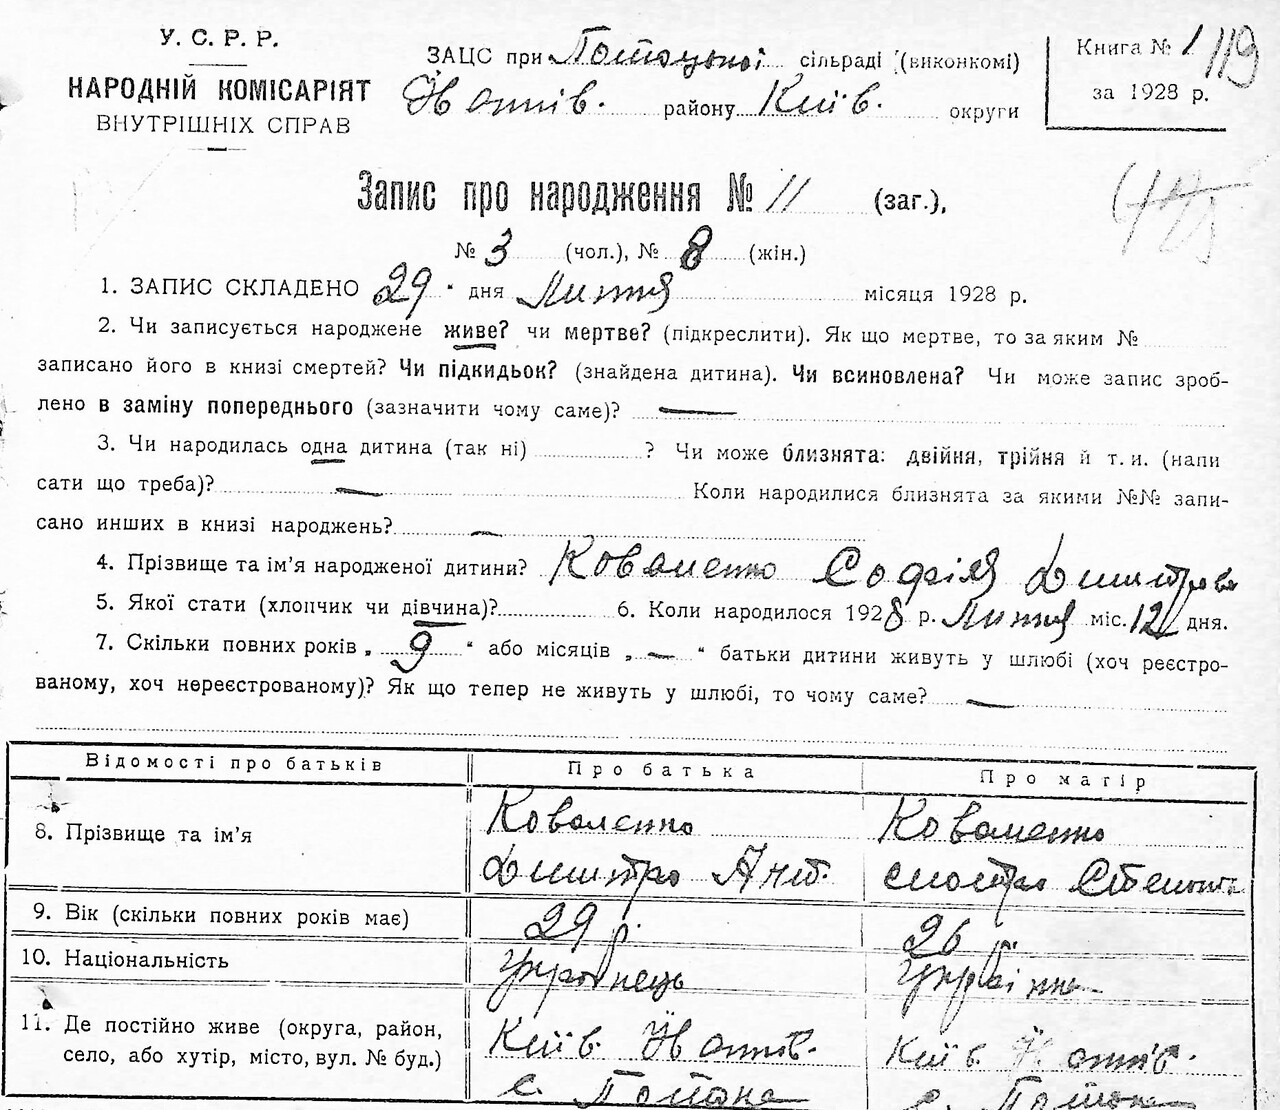 У. С. Р. Р.
НАРОДНІЙ КОМІСАРІЯТ
ВНУТРІШНІХ СПРАВ
ЗАЦС при сільраді (виконкомі)
району Київ. округи
Книга № 1 119
за 1928 р.
Запис про народження № 11 (заг.),
№ 3 (чол.), № 8 (жін.)
1. ЗАПИС СКЛАДЕНО 29 " дня Лютня місяця 1928 р.
2. Чи записується народжене живе? чи мертве? (підкреслити). Як що мертве, то за яким №
записано його в книзі смертей? Чи підкидьок? (знайдена дитина). Чи всиновлена? Чи може запис зроб-
лено в заміну попереднього (зазначити чому саме)? —
3. Чи народилась одна дитина (так ні) ? Чи може близнята: двійня, трійня й т. и. (напи
сати що треба)? — Коли народилися близнята за якими №№ запи-
сано инших в книзі народжень? —
4. Прізвище та ім'я народженої дитини? Коваленко Софія Дмитрова
5. Якої стати (хлопчик чи дівчина)? 6. Коли народилося 1928 р. Лютня міс. 12 дня.
7. Скільки повних років „ 9 " або місяців „ — " батьки дитини живуть у шлюбі (хоч реєстро-
ваному, хоч нереєстрованому)? Як що тепер не живуть у шлюбі, то чому саме? —
Відомості про батьків Про батька Про матір
8. Прізвище та ім'я Коваленко Коваленко
Дмитро Ант.
9. Вік (скільки повних років має) 29 р. 26 р.
10. Національність Українець Українка
11. Де постійно живе (округа, район, Київ. Київ.
село, або хутір, місто, вул. № буд.)
с. с.